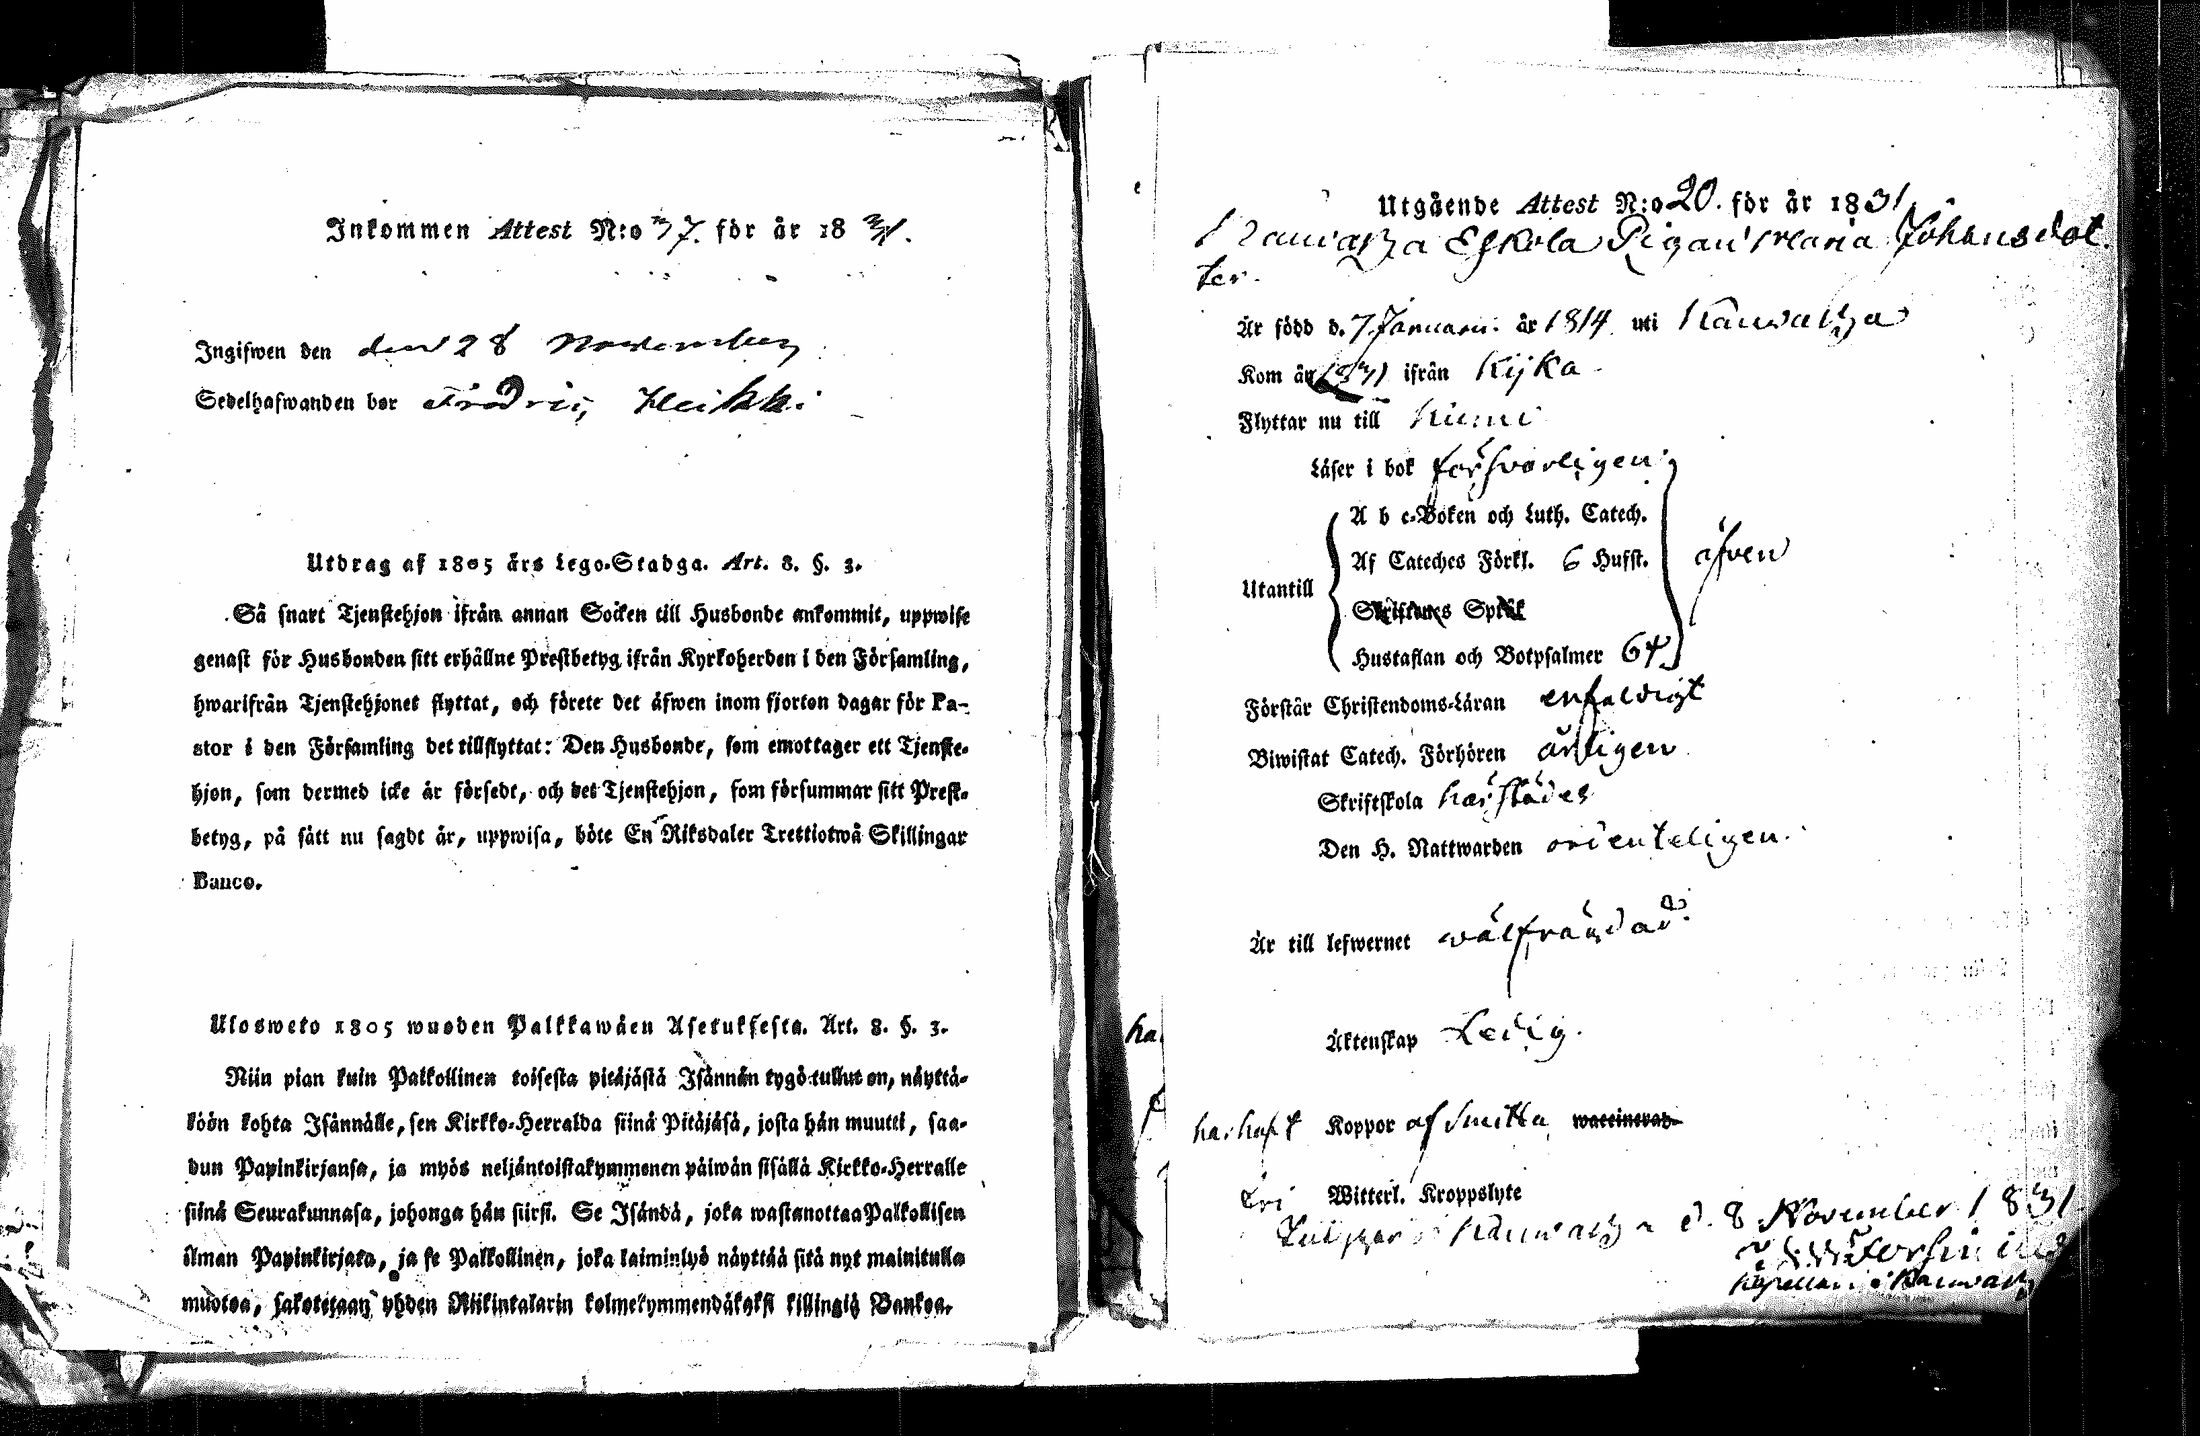 Inkommen Attest N:o 37. för år 1831.
Ingifwen den den 28 November
Sedelhafwanden bor Fredric Heikki
Utdrag af 1805 års Lego-Stadga. Art. 8. §. 3.
Så snart Tjenstehjon ifrån annan Socken till Husbonde ankommit, uppwise
genast för Husbonden sitt erhållne Prestbetyg ifrån Kyrkoherden i den Församling,
hwarifrån Tjenstehjonet flyttat, och förete det äfwen inom fjorton dagar för Pa-
stor i den Församling det tillflyttat: Den Husbonde, som emottager ett Tjenste-
hjon, som dermed icke är försedt, och det Tjenstehjon, som försummar sitt Prest-
betyg, på sätt nu sagdt är, uppwisa, böte En Riksdaler Trettiotwå Skillingar
Banco.
Ulosweto 1805 wuoden Palkkawäen Asetuksesta. Art. 8. §. 3.
Niin pian kuin Palkollinen toisesta pitäjästä Isännän tygö tullut on, näyttä-
köön kohta Isännälle, sen Kirkko-Herralda siinä Pitäjäsä, josta hän muutti, saa-
dun Papinkirjansa, ja myös neljäntoistakymmenen päiwän sisällä Kirkko-Herralle
siinä Seurakunnasa, johonga hän siirsi. Se Isändä, joka wastanottaa Palkollisen
ilman Papinkirjata, ja se Palkollinen, joka laiminlyö näyttää sitä nyt mainitulla
muotoa, sakotetaan yhden Riikintalarin kolmekymmendäkaksi killingiä Bankoa.
Utgående Attest N:o 20. för år 1831.
Kauvatza Eskola Pigan Maria Johansdot
ter.
Är född d. 7 Januari. år 1814. uti Kauvatza
Kom år 1831 ifrån Kijka
Flyttar nu till Kumi
Läser i bok försvarligen
A b c-Boken och Luth. Catech.
Af Cateches Förkl. 6 Hufst. äfven
Utantill
Skriftenes Språk
Hustaflan och Botpsalmer 64
Förstår Christendoms-Läran enfaldigt
Biwistat Catech. Förhören årligen
Skriftskola härstädes
Den H. Nattwarden ordenteligen.
Är till lefwernet wälfrägdad
Äktenskap Ledig.
har haft Koppor af smitta waccinerad
fri Witterl. Kroppslyte
Kauvatza d. 8 November 1831
Capellan i Kauvatz